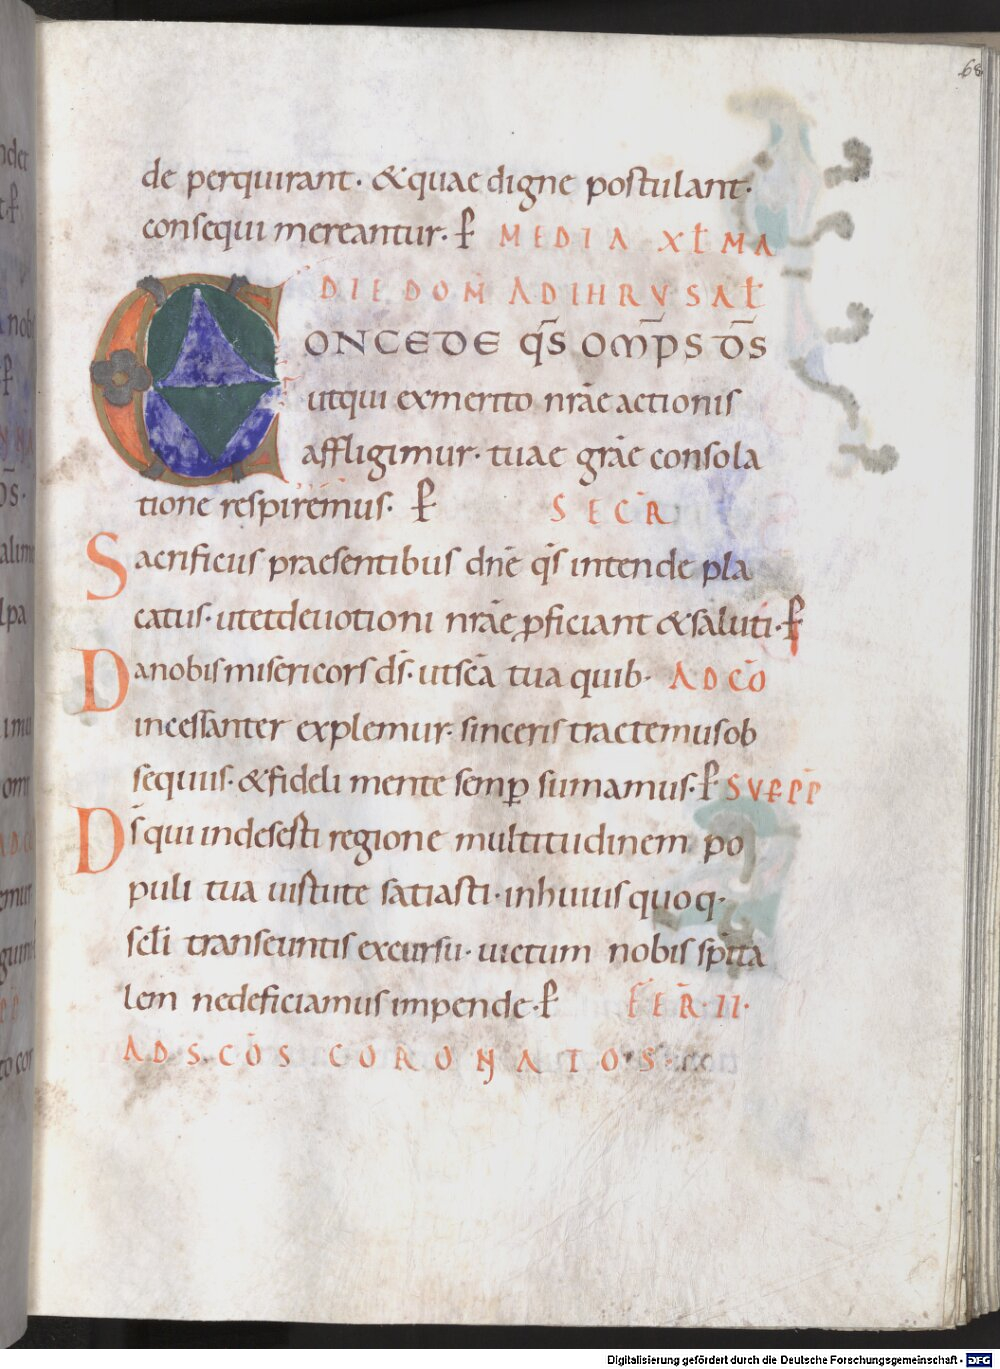 68
de perquirant · &quae digne postulant·
consequi mereantur· ꝑ MEDIA XL̄ MA
DIE DOM̄ ADIHRVSAL̄
CONCEDE qs̄ OMP̄S D̄S
utqui exmerito nr̄ae actionis
affligimur· tuae gr̄ae consola
tione respiremus· ꝑ SECR̄
Sacrificiis praesentibus dn̄e qs̄ intende pla
catus· utetdeuotioni nr̄ae ꝓficiant &saluti· ꝑ
Danobis misericors ds̄· utsc̄a tua quib· ADCŌ
incessanter explemur· sinceris tractemusob
sequiis· &fideli mente semꝑ sumamus· ꝑ SVPP̄P
Ds̄qui indesesti regione multitudinem po
puli tua uistute satiasti· inhuius quoq·
scl̄i transeuntis excursu· uictum nobis spīta
lem nedeficiamus impende· ꝑ FER̄·II·
ADS·CŌS CORONATOS·
Digitalisierung gefördert durch die Deutsche Forschungsgemeinschaft - DFG